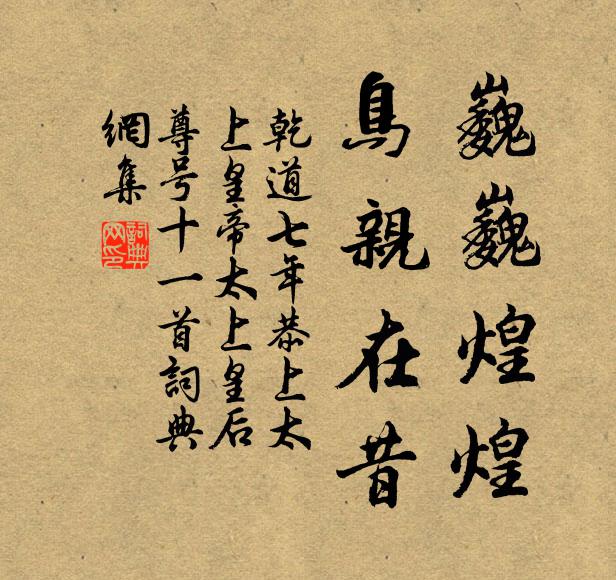 巍巍煌煌
鳥親在昔
乾道七年恭上太
上皇帝太上皇后
尊号十一首詞典
網集
詞典
网印